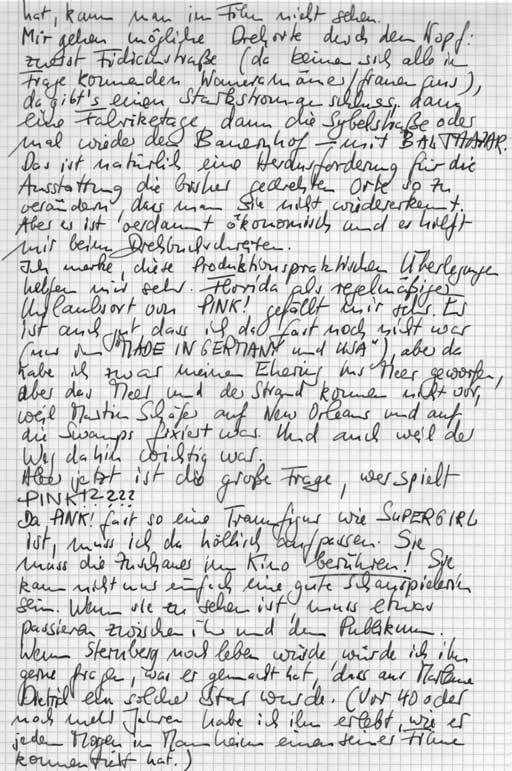 hat, kann man im Film nicht sehen.
Mir gehen mögliche Drehorte durch den Kopf:
zuerst Fidicinstraße (da keiner sich alle in
Frage kommenden Womeramänner/frauen aus),
da gibt's einen Starkstromanschluss, dann
eine Fabriketage dann die Sybelstraße oder
mal wieder den Bauernhof – mit BALTHAZAR.
Das ist natürlich eine Herausforderung für die
Ausstattung die bisher gedrehten Orte so zu
verändern, dass man sie nicht wiedererkennt.
Aber es ist verdammt ökonomisch und es hilft
mir beim Drehbuchschreiben.
Ich merke, diese Produktionspraktischen Überlegungen
helfen mir sehr. Florida als regelmäßiger
Urlaubsort von PINK! gefällt mir sehr. Es
ist auch gut, dass ich da fast noch nicht war
(nur in "MADE IN GERMANY und USA"), aber da
habe ich zwar meinen Ehering ins Meer geworfen,
aber das Meer und der Strand kommen nicht vor,
weil Martin Schäfer auf New Orleans und auf
die Swamps fixiert war. Und auch weil der
Weg dahin wichtig war.
Aber jetzt ist die große Frage, wer spielt
PINK!????
Da PINK! fast so eine Traumfigur wie SUPERGIRL
ist, muss ich da höllisch aufpassen. Sie
muss die Zuschauer im Kino berühren! Sie
kann nicht nur einfach eine gute Schauspielerin
sein. Wenn sie zu sehen ist, muss etwas
passieren zwischen ihr und dem Publikum.
Wenn Sternberg noch leben würde, würde ich ihn
gerne fragen, was er gemacht hat, dass aus Marlene
Dietrich ein solcher Star wurde. (Vor 40 oder
noch mehr Jahren habe ich ihn erlebt, wie er
jeden Morgen in Mannheim einen seiner Filme
kommentiert hat.)